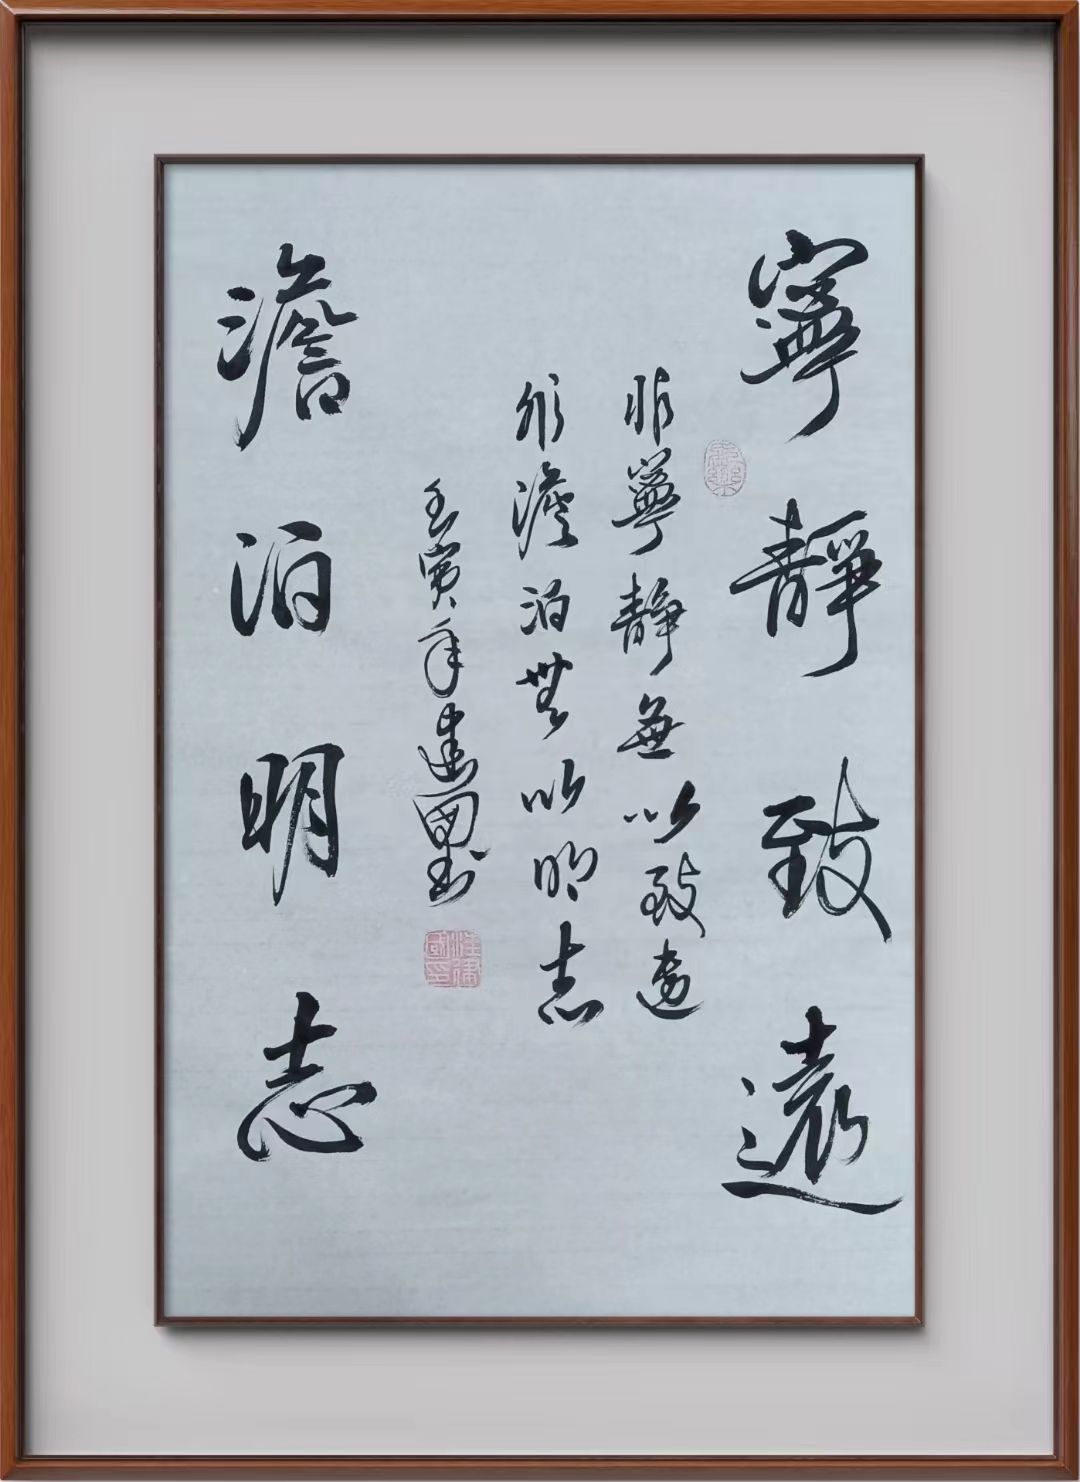 寧靜致遠
非寧靜無以致遠
非澹泊無以明志
壬寅年建國書
汪建國印
澹泊明志